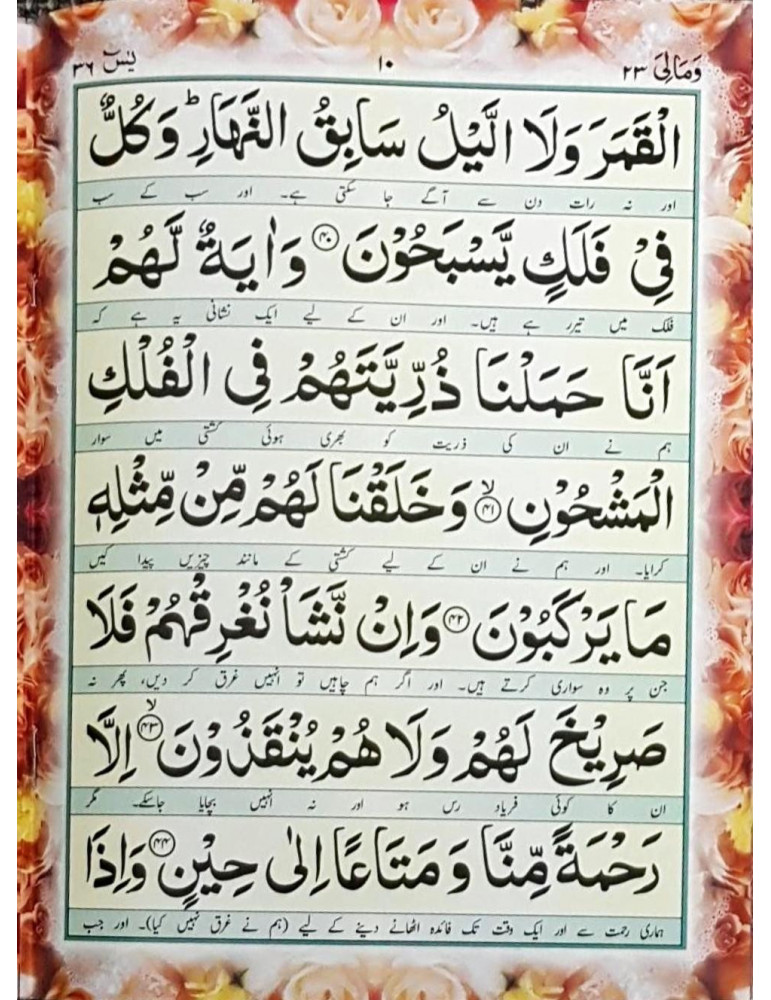 وَمَالِىَ ٢٣ ١٠ يٰسٓ ٣٦
الْقَمَرَ وَلَا الَّيْلُ سَابِقُ النَّهَارِ ؕ وَكُلٌّ
اور نہ رات دن سے آگے جا سکتی ہے۔ اور سب کے سب
فِىْ فَلَكٍ يَّسْبَحُوْنَ ۝۴۰ وَاٰيَةٌ لَّهُمْ
فلک میں تیر رہے ہیں۔ اور ان کے لیے ایک نشانی یہ ہے کہ
اَنَّا حَمَلْنَا ذُرِّيَّتَهُمْ فِى الْفُلْكِ
ہم نے ان کی ذریت کو بھری ہوئی کشتی میں سوار
الْمَشْحُوْنِ ۝۴۱ۙ وَخَلَقْنَا لَهُمْ مِّنْ مِّثْلِهٖ
کرایا۔ اور ہم نے ان کے لیے کشتی کے مانند چیزیں پیدا کیں
مَا يَرْكَبُوْنَ ۝۴۲ وَاِنْ نَّشَاْ نُغْرِقْهُمْ فَلَا
جن پر وہ سواری کرتے ہیں۔ اور اگر ہم چاہیں تو انہیں غرق کر دیں، پھر نہ
صَرِيْخَ لَهُمْ وَلَا هُمْ يُنْقَذُوْنَ ۝۴۳ۙ اِلَّا
ان کا کوئی فریاد رس ہو اور نہ انہیں بچایا جاسکے۔ مگر
رَحْمَةً مِّنَّا وَ مَتَاعًا اِلٰى حِيْنٍ ۝۴۴ وَاِذَا
ہماری رحمت سے اور ایک وقت تک فائدہ اٹھانے دینے کے لیے (ہم نے غرق نہیں کیا)۔ اور جب